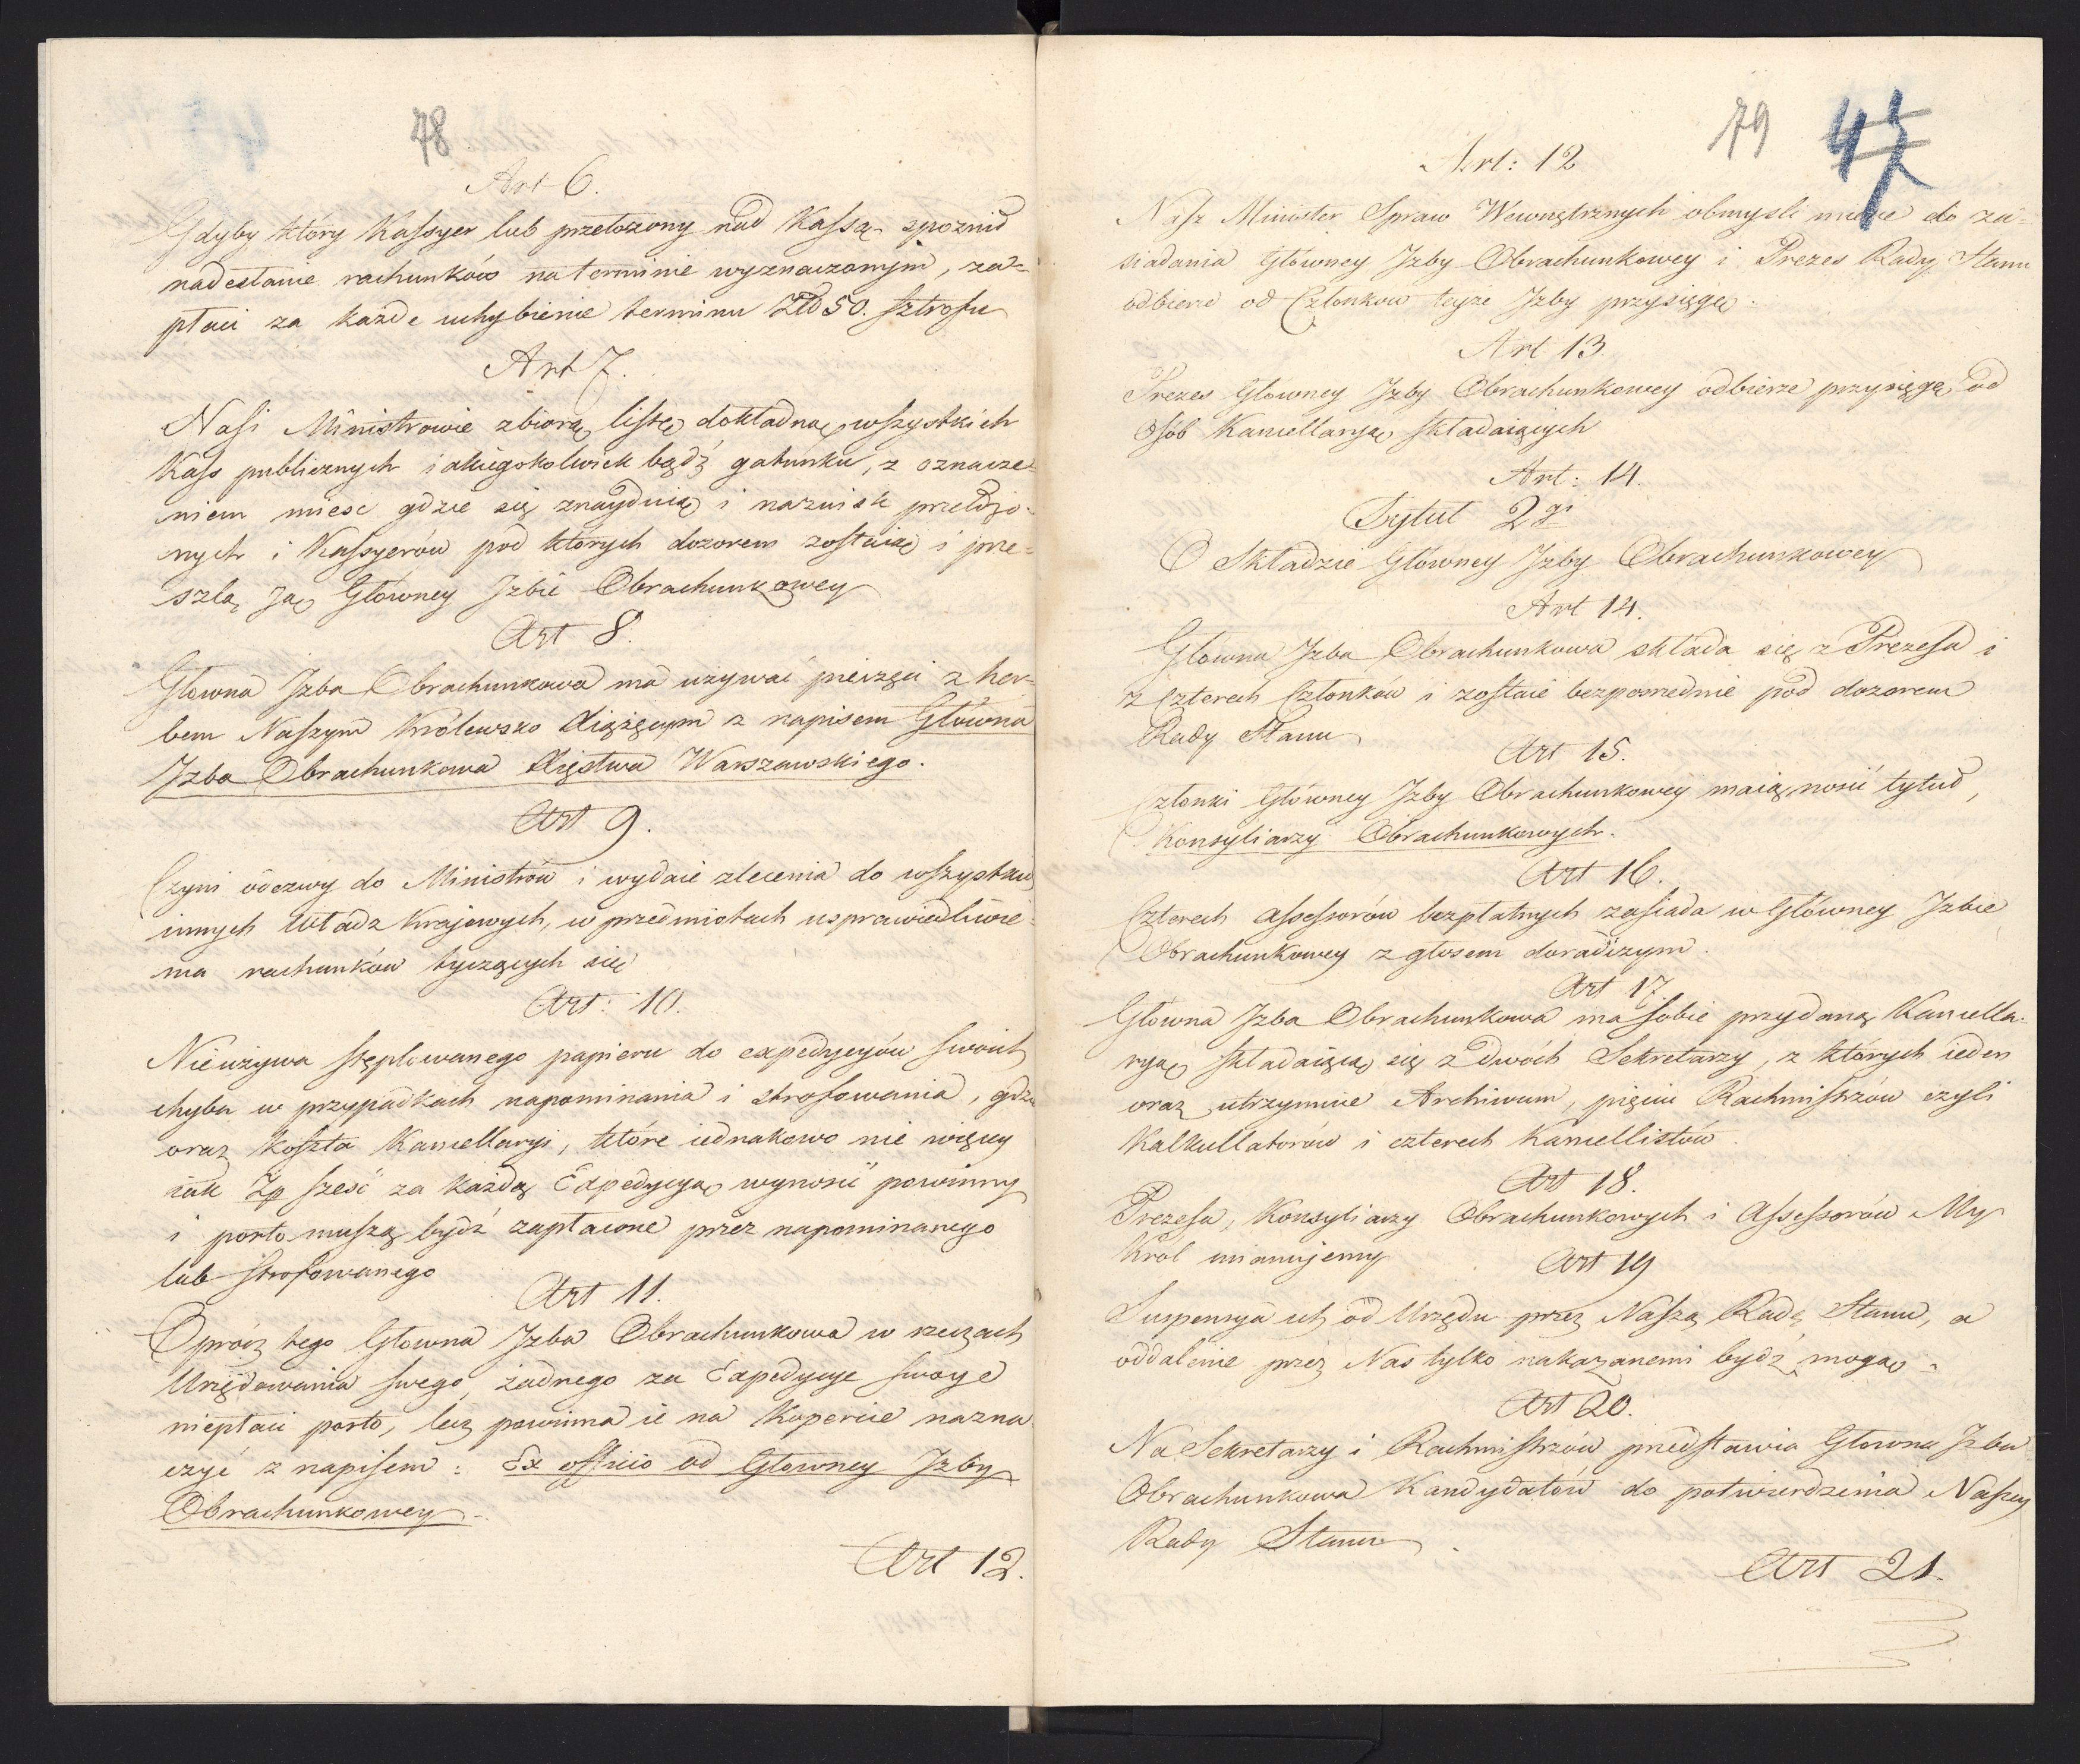 78
Art 6.
Gdyby który Kassyer lub przełożony nad Kassą spoznił
nadesłanie rachunków na terminie wyznaczonym, za=
płaci za każde uchybienie terminu Złł 50. sztrofu
Art 7.
Nasi Ministrowie zbiorą listę dokładną wszystkich
Kass publicznych iakiegokolwiek bądź gatunku, z oznacze=
niem mieść gdzie się znayduią i nazwisk przełożo=
nych i Kassyerów pod których dozorem zostaią i prze=
szlą ją Główney Jzbie Obrachunkowey
Art 8.
Główna Jzba Obrachunkowa ma używać pieczęci z her=
bem Naszym Królewsko Xiążęcym z napisem Główna
Jzba Obrachunkowa Xięstwa Warszawskiego.
Art 9.
Czyni odezwy do Ministrów i wydaie zlecenia do wszystkich
innych Władz Krajowych, w przedmiotach usprawiedliwie=
nia rachunków tyczących się
Art: 10.
Nieużywa stęplowanego papieru do expedycyów swoich
chyba w przypadkach napominania i strofowania, gdzie
oraz koszta Kancellaryi, które iednakowo nie więcey
iak Zp sześć za każdą Expedycyą wynosić powinny
i porto muszą bydź zapłacone przez napominanego
lub strofowanego
Art 11.
Oprócz tego Główna Jzba Obrachunkowa w rzeczach
Urzędowania swego, żadnego za Expedycye swoye
niepłaci porto, lecz powinna ie na Kopercie nazna
czyć z napisem: Ex officio od Główney Jzby
Obrachunkowey.
Art 12.
79
Art: 12
Nasz Minister Spraw Wewnętrznych obmyśli mieysce do za=
siadania Główney Jzby Obrachunkowey i Prezes Rady Stanu
odbierze od Członkow teyże Jzby przysięgę.
Art 13.
Prezes Główney Jzby Obrachunkowey odbierze przysięgę od
Osób Kancellaryą składaiących
Art: 14.
Tytuł 2gi
O Składzie Główney Jzby Obrachunkowey
Art 14.
Główna Jzba Obrachunkowa składa się z Prezesa i
z Czterech Członków i zostaie bezpośrednie pod dozorem
Rady Stanu
Art 15.
Członki Główney Jzby Obrachunkowey maią nosić tytuł,
Konsyliarzy Obrachunkowych.
Art 16.
Czterech Assessorów bezpłatnych zasiada w Główney Jzbie
Obrachunkowey z głosem doradczym.
Art 17
Główna Jzba Obrachunkowa ma sobie przydaną Kancella=
ryą składaiącą się z dwóch Sekretarzy, z których ieden
oraz utrzymuie Archiwum, pięciu Rachmistrzów czyli
Kalkullatorów i czterech Kancellistów.
Art 18.
Prezesa, Konsyliarzy Obrachunkowych i Assessorów My
Król mianujemy
Art 19
Suspensya ich od Urzędu przez Naszą Radę Stanu, a
oddalenie przez Nas tylko nakazanemi bydź mogą.
Art 20.
Na Sekretarzy i Rachmistrzów przedstawia Główna Jzba
Obrachunkowa Kandydatów do potwierdzenia Naszey
Rady Stanu.
Art 21.